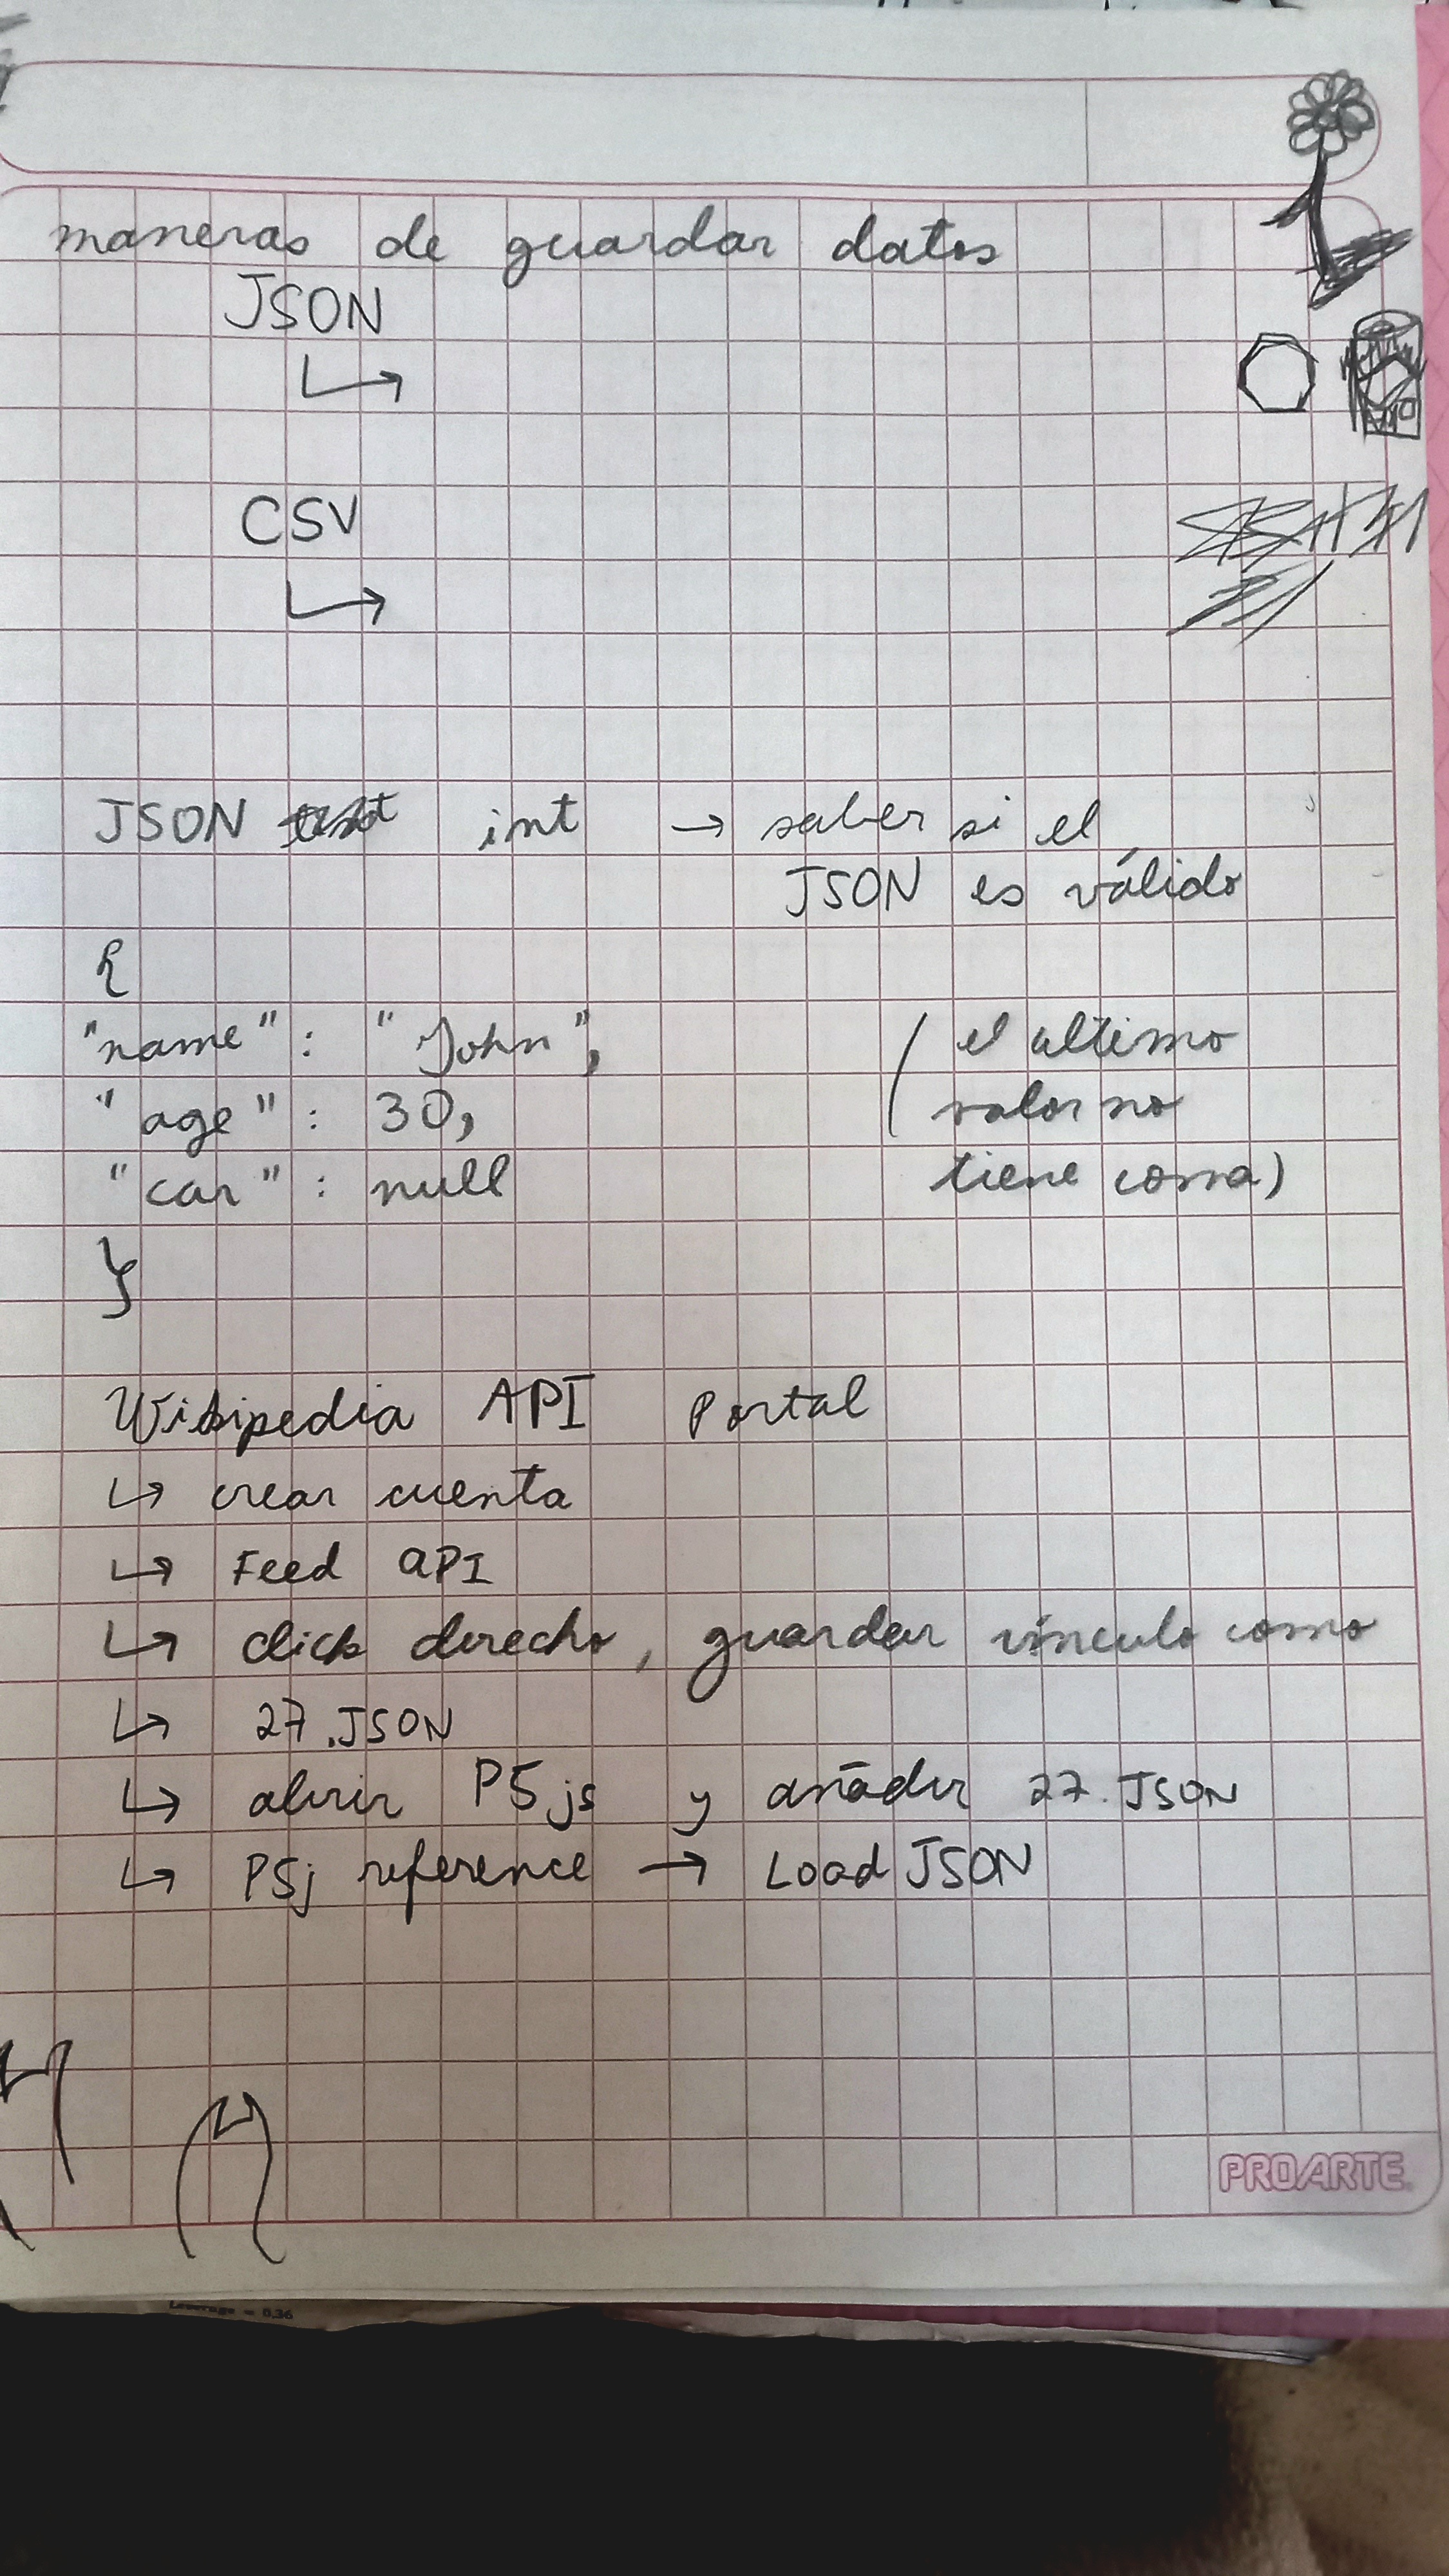 maneras de guardar datos
JSON
↳
CSV
↳
JSON int → saber si el
JSON es válido
{
"name" : "John",
"age" : 30,
"car" : null
}
(el ultimo
valor no
tiene coma)
Wikipedia API Portal
↳ crear cuenta
↳ Feed API
↳ click derecho, guardar vínculo como
↳ 27.JSON
↳ abrir P5js y añadir 27.JSON
↳ P5j reference → Load JSON
PROARTE
Leverage = 0.36